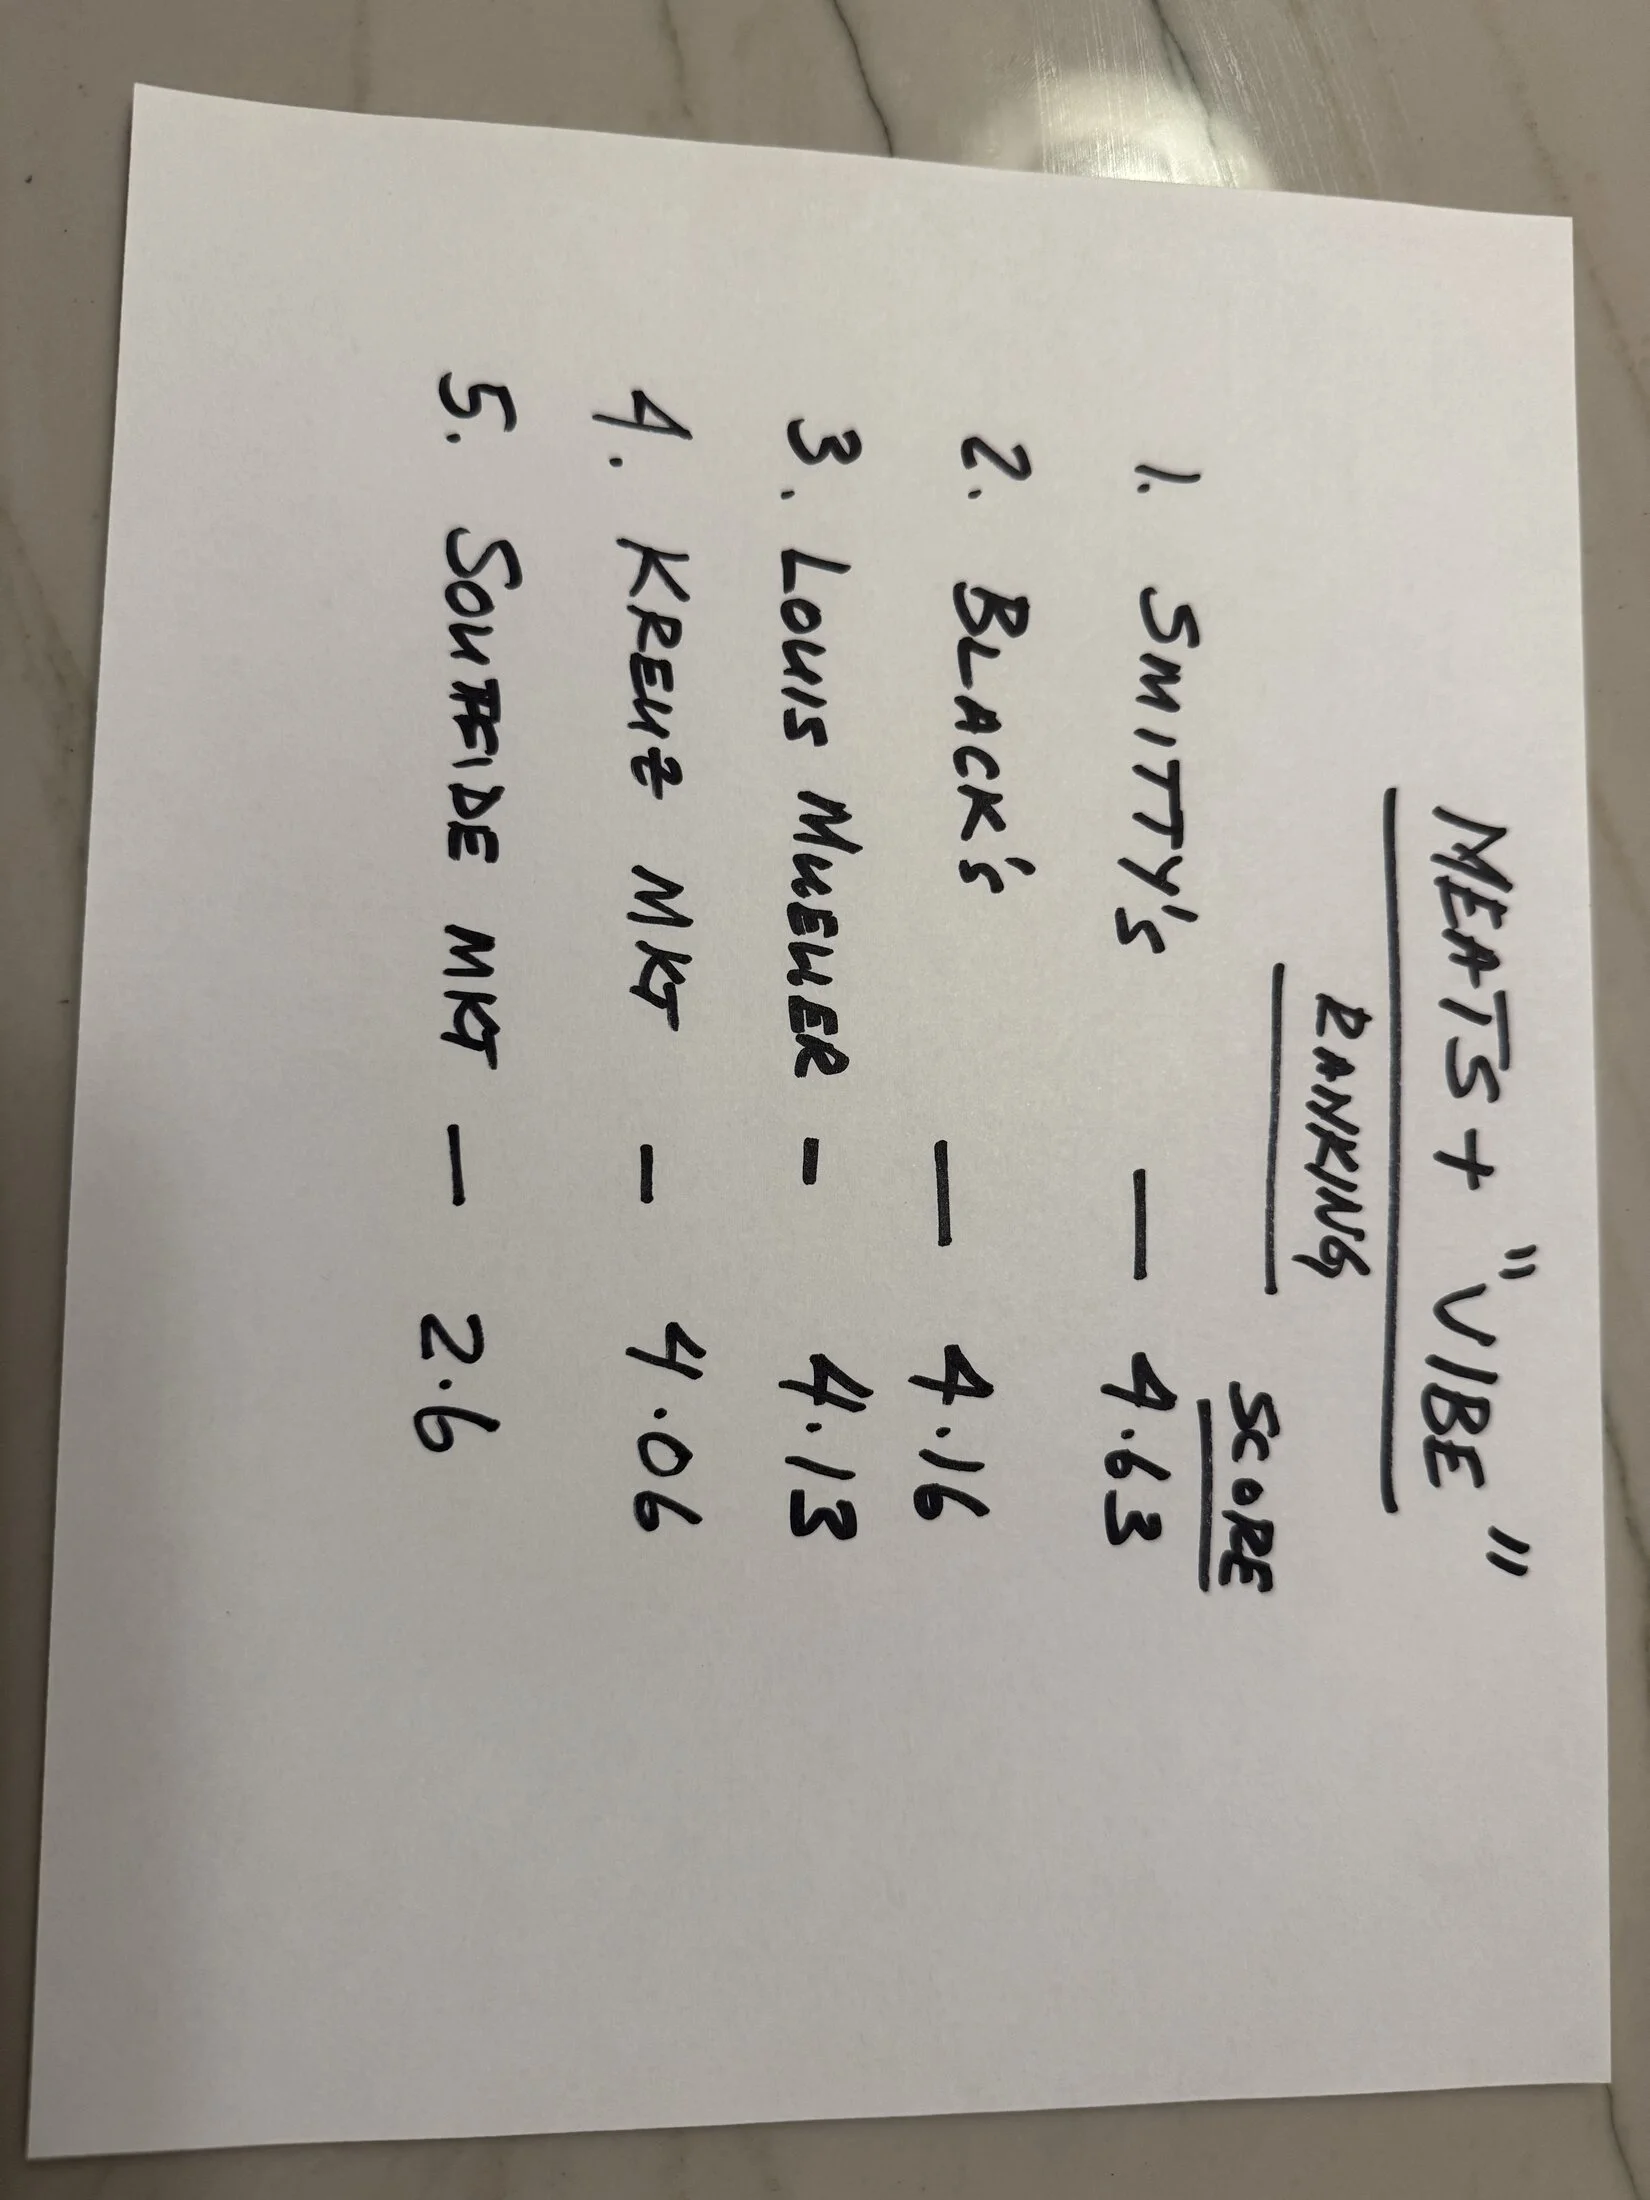 MEATS + "VIBE"
RANKING
SCORE
1. SMITTY'S — 4.63
2. BLACK'S — 4.16
3. LOUIS MUELLER - 4.13
4. KREUZ MKT - 4.06
5. SOUTHSIDE MKT — 2.6